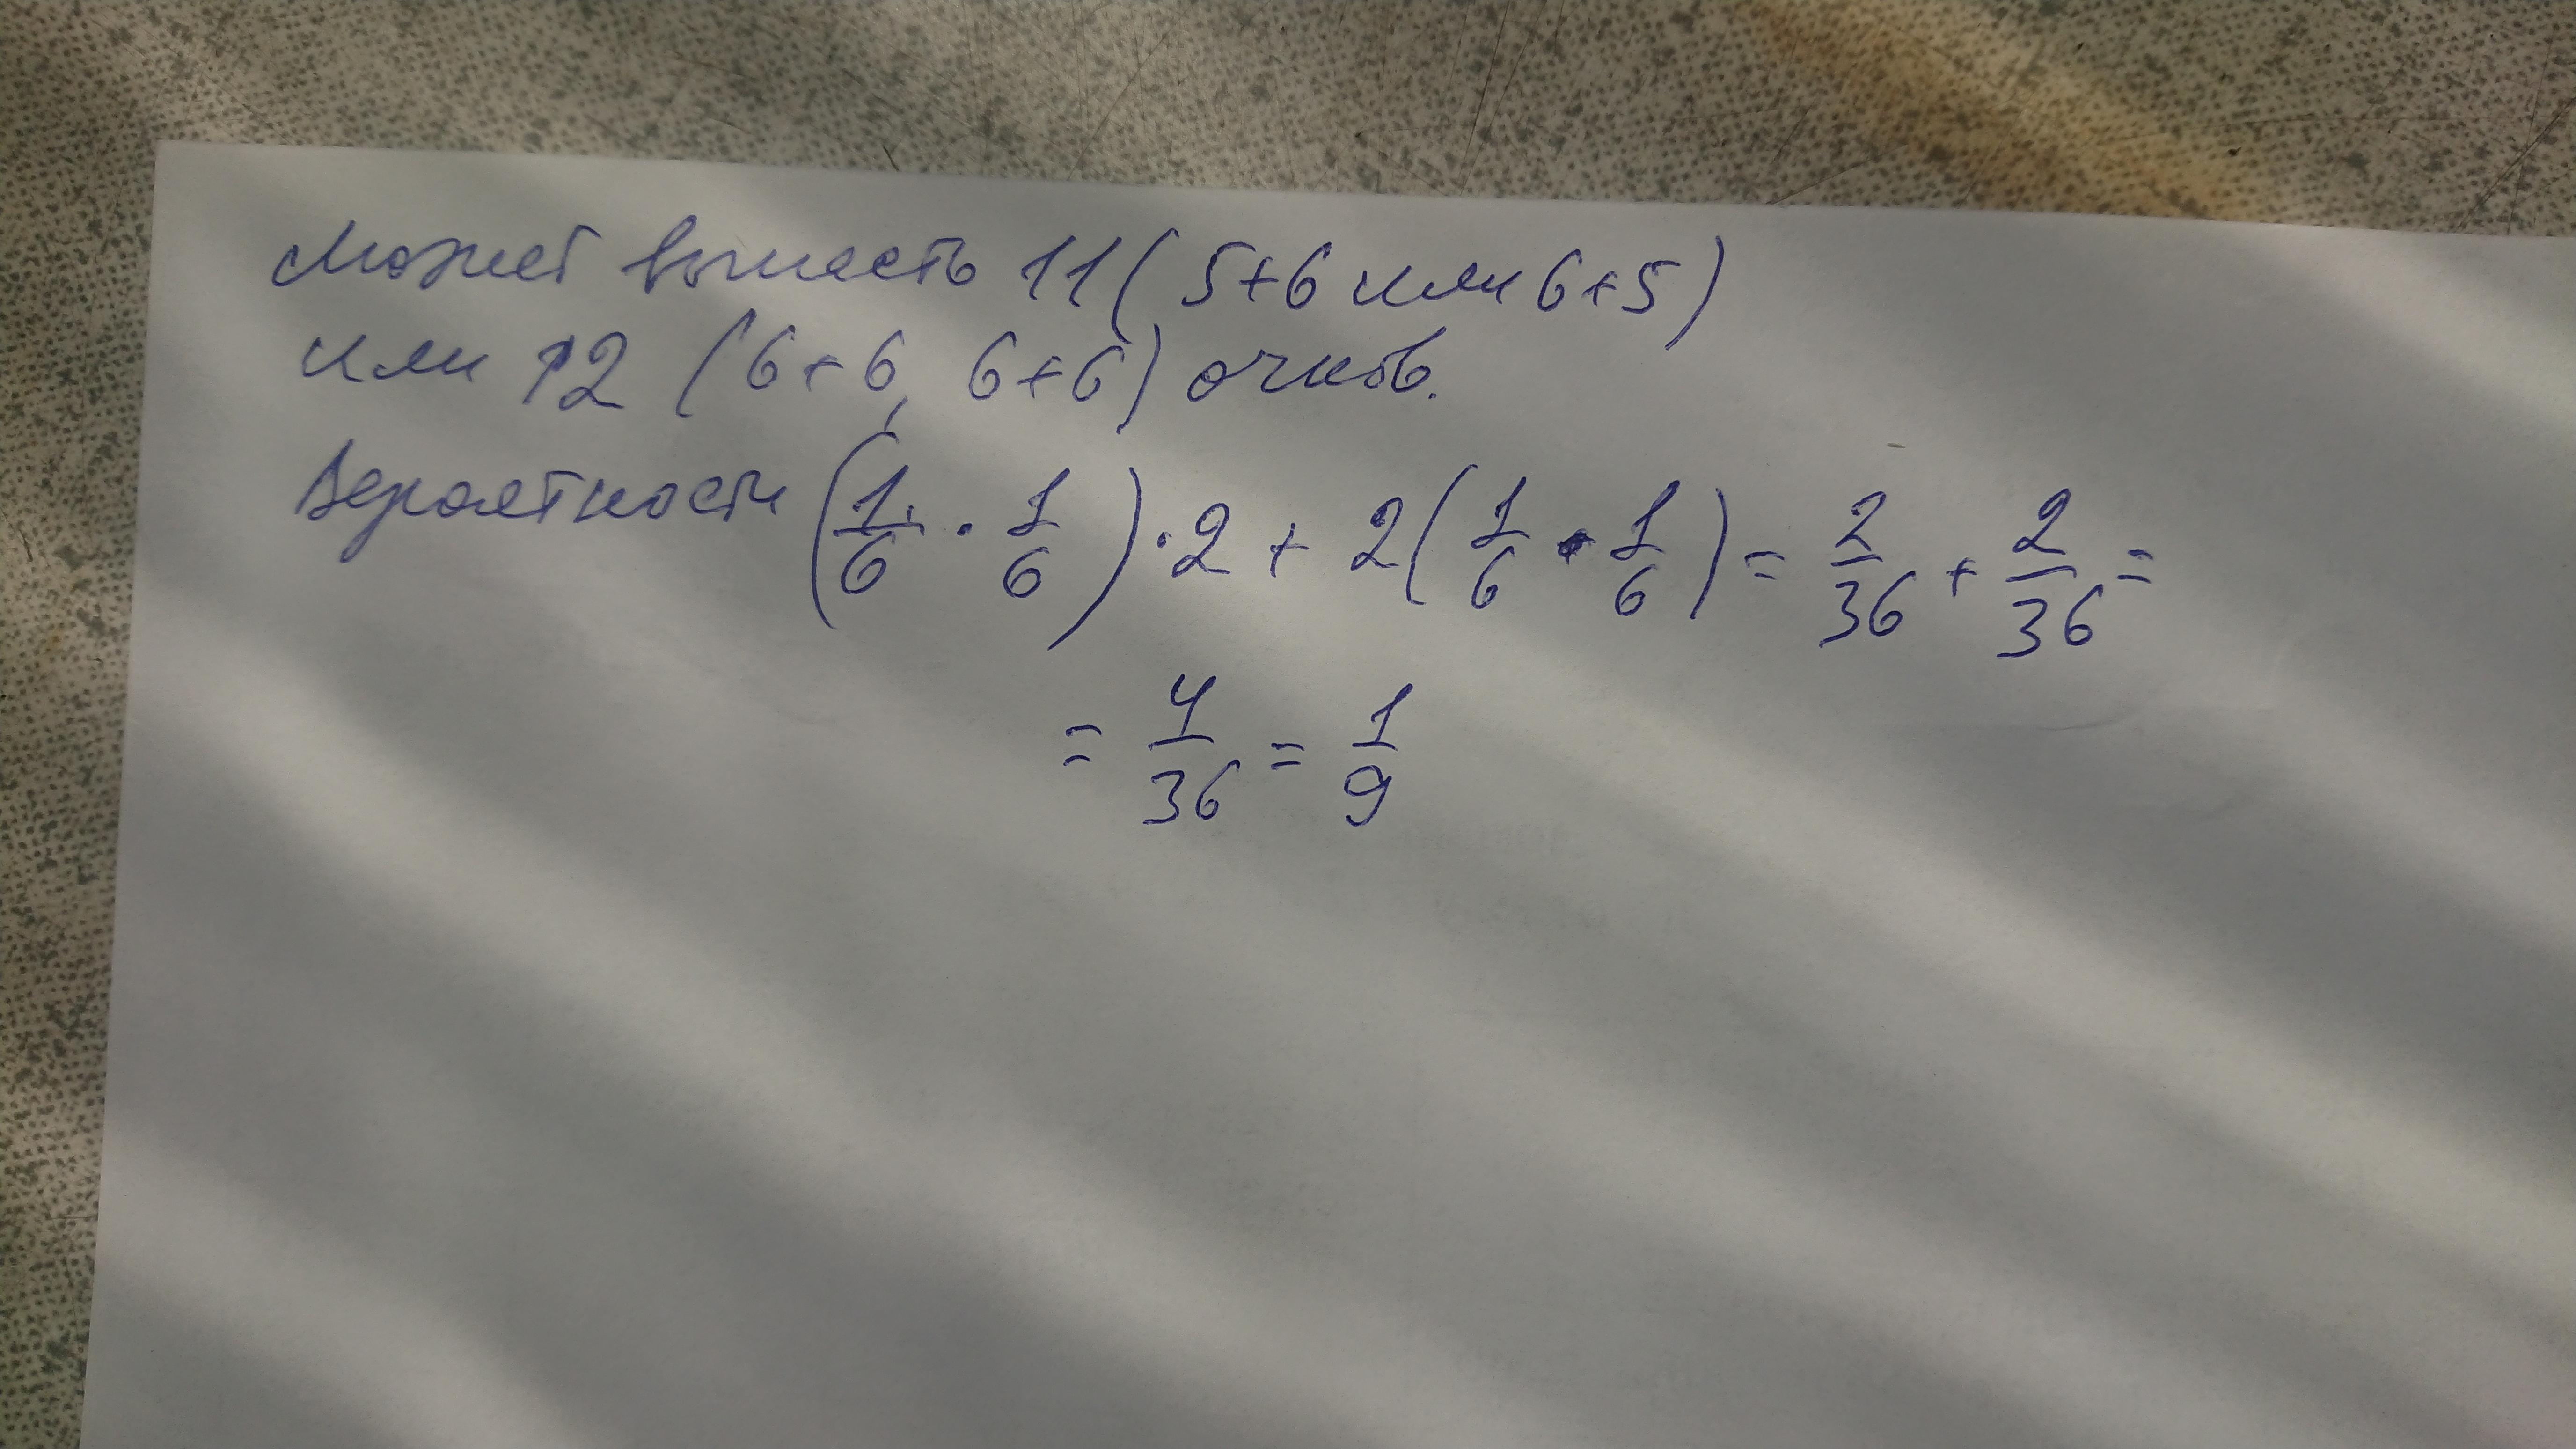 Может выпасть 11 (5+6 или 6+5)
или 12 (6+6, 6+6) очков.
Вероятности (1/6 · 1/6) · 2 + 2(1/6 · 1/6) = 2/36 + 2/36 =
= 4/36 = 1/9